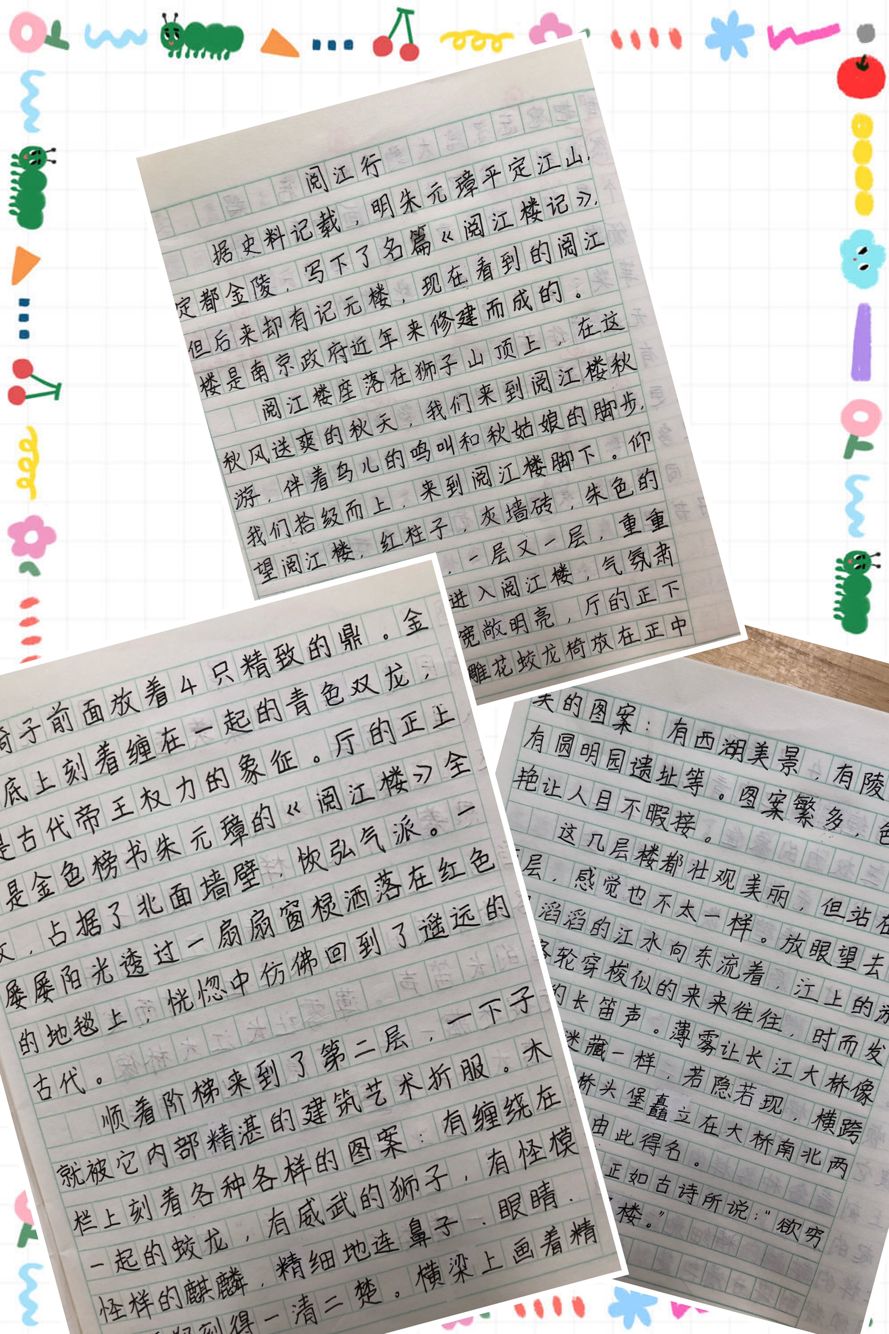 阅江行
据史料记载，明朱元璋平定江山，
定都金陵，写下了名篇《阅江楼记》，
但后来却有记元楼，现在看到的阅江
楼是南京政府近年来修建而成的。
阅江楼座落在狮子山顶上，在这
秋风送爽的秋天，我们来到阅江楼秋
游，伴着鸟儿的鸣叫和秋姑娘的脚步，
我们拾级而上，来到阅江楼脚下。仰
望阅江楼，红柱子，灰墙砖，朱色的
，一层又一层，重重
进入阅江楼，气氛肃
宽敞明亮，厅的正下
雕花蛟龙椅放在正中
椅子前面放着4只精致的鼎。金
底上刻着缠在一起的青色双龙，
是古代帝王权力的象征。厅的正上
是金色榜书朱元璋的《阅江楼》全
文，占据了北面墙壁，恢弘气派。一
屡屡阳光透过一扇扇窗棂洒落在红色
的地毯上，恍惚中仿佛回到了遥远的
古代。
顺着阶梯来到了第二层，一下子
就被它内部精湛的建筑艺术折服。木
栏上刻着各种各样的图案：有缠绕在
一起的蛟龙，有威武的狮子，有怪模
怪样的麒麟，精细地连鼻子、眼睛、
刻得一清二楚。横梁上画着精
美的图案：有西湖美景，有陵
有圆明园遗址等。图案繁多，色
艳让人目不暇接。
这几层楼都壮观美丽，但站在
层，感觉也不太一样。放眼望去
滔滔的江水向东流着，江上的游
轮穿梭似的来来往往，时而发
的长笛声。薄雾让长江大桥像
迷藏一样，若隐若现，横跨
桥头堡矗立在大桥南北两
由此得名。
正如古诗所说：“欲穷
楼。”